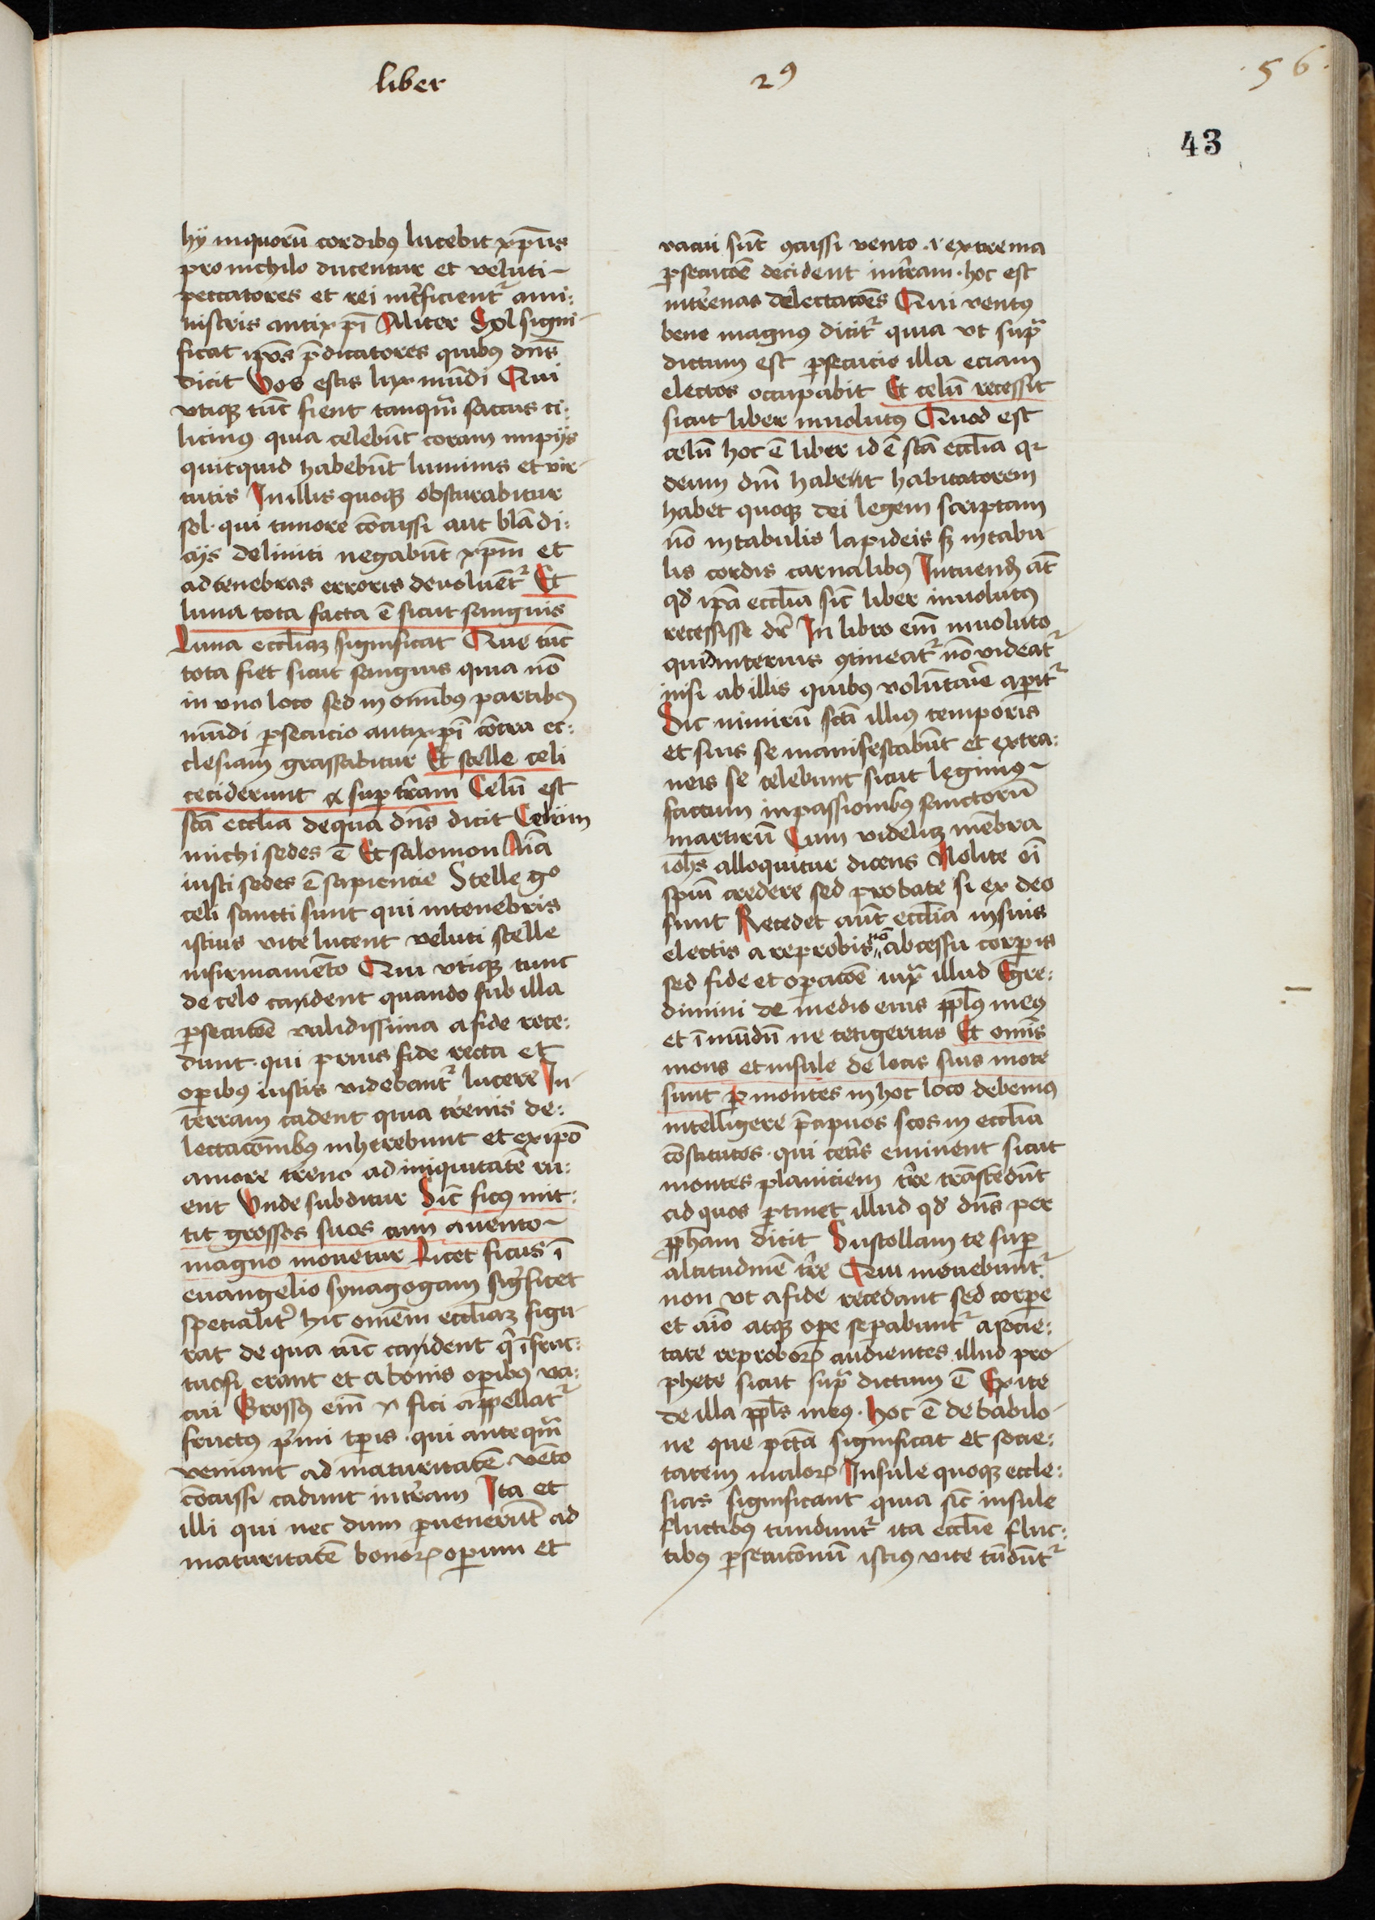 liber 2⁹
56
43
hÿ inquorū cordibꝯ lucebit xp̄us
pro nichilo ducentur et veluti
peccatores et rei int̄ficientʳ ami-
nistris antixp̄i Aliter Sol signi-
ficat ip̄os p̄dicatores quibꝯ dn̄s
dicit Vos estis lux mūdi Qui
vtiqꝫ tūc fient tanqm̄ saccus ci-
licinus quia celebūt coram impijs
quicquid habebūt luminis et vir-
tutis In illis quoqꝫ obscurabitur
sol · qui timore cōcussi aut blādi-
cijs deliniti negabūt xp̄m et
ad tenebras erroris deuoluentʳ Et
luna tota facta ē sicut sanguis
Luna eccl̄iaꝫ significat Que tūc
tota fiet sicut sanguis quia nō
in vno loco sed in omībꝯ partibꝯ
mūdi ꝑsecucio antixp̄i cōtra ec-
clesiam grassabitur Et stelle celi
ceciderunt suꝑ t̄ram Celū est
sc̄a eccl̄ia dequa dn̄s dicit Celum
michi sedes ē Et salomon Aīa
iusti sedes ē sapiencie Stelle gº
celi sancti sunt qui intenebris
istius vite lucent veluti stelle
infirmamēto Qui vtiqꝫ tunc
de celo cadent quando sub illa
ꝑsecucōe validissima a fide rece-
dunt · qui prius fide recta et
oꝑibꝯ iustis videbantʳ lucere In
terram cadent quia t̄renis de-
lectacōnibꝯ inherebunt et ex ip̄o
amore t̄reno ad iniquitatē ru-
ent Vnde subditur Sic̄ ficꝯ mit-
tit grossos suos cum avento
magno mouetur Licet ficus ī
euangelio synagogam siḡficet
specialit̄ hic omēm eccl̄iaꝫ figu-
rat de qua tūc cadent q̄ īfruc-
tuosi erant et abonis oꝑibꝯ va-
cui Grossꝯ em̄ fici appellatʳ
fructꝯ p̄mi tp̄is · qui anteqm̄
veniant ad maturitatē vēto
cōcussi cadunt int̄ram Ita et
illi qui nec dum ꝑuenerūt ad
maturitatē bonorꝫ operum et
vacui sūt ꝯcussi vento extrema
ꝑsecucōe decident int̄ram · hoc est
int̄renas delectacōes Qui ventꝯ
bene magnus dicitʳ quia vt sup̄
dictum est ꝑsecucio illa eciam
electos occupabit Et celū recessit
sicut liber inuolutꝯ Quod est
celū hoc ē liber id ē sc̄a eccl̄ia qr
deum dm̄ habent habitatorem
habet quoqꝫ dei legem scriptam
nō intabulis lapideis sꝫ intabu
lis cordis carnalibꝯ Intuend̄ āt
qd̄ ip̄a eccl̄ia sic̄ liber inuolutꝯ
recessisse dr̄ In libro em̄ inuoluto
quid interius ꝯtineatʳ nō videatʳ
nisi ab illis quibꝯ volūtarie aꝑitʳ
Sic nimirū sc̄i illiꝯ temporis
et suis se manifestabūt et extra-
neis se celebunt sicut legimꝯ
factum inpassionibꝯ sanctorū
martirū Cum videliꝫ mēbra
ioh̄s alloquitur dicens Nolite oī
spūi credere sed probate si ex deo
sunt Recedet aut̄ eccl̄ia insuis
electis a reprobis nō abcessu corꝑis
sed fide et oꝑacōe iux̄ illud Egre-
dimini de medio eius ppl̄s meꝯ
et īmūdū ne tetigeritis Et om̄is
mons et insule de locis suis mote
sunt ꝑ montes in hoc loco debemꝯ
intelligere p̄cipuos scos in eccl̄ia
cōstitutos · qui cet̄is eminent sicut
montes planiciem t̄re trāscedūt
ad quos ꝑtinet illud qd̄ dn̄s per
pph̄am dicit Sustollam te suꝑ
altitudinē t̄re Qui mouebuntʳ
non vt a fide recedant sed corpe
et aīo atqꝫ oꝑe seꝑabuntʳ a socie-
tate reproborꝫ audientes illud pro
phete sicut sup̄ dictum ē Exite
de illa ppl̄s meꝯ · hoc ē de babilo
ne que pctā significat et socie-
tatem malorꝫ Insule quoqꝫ eccle-
sias significant quia sic̄ insule
fluctibꝯ tunduntʳ ita eccl̄ie fluc-
tibꝯ ꝑsecucōnū istiꝯ vite tūdūtʳ